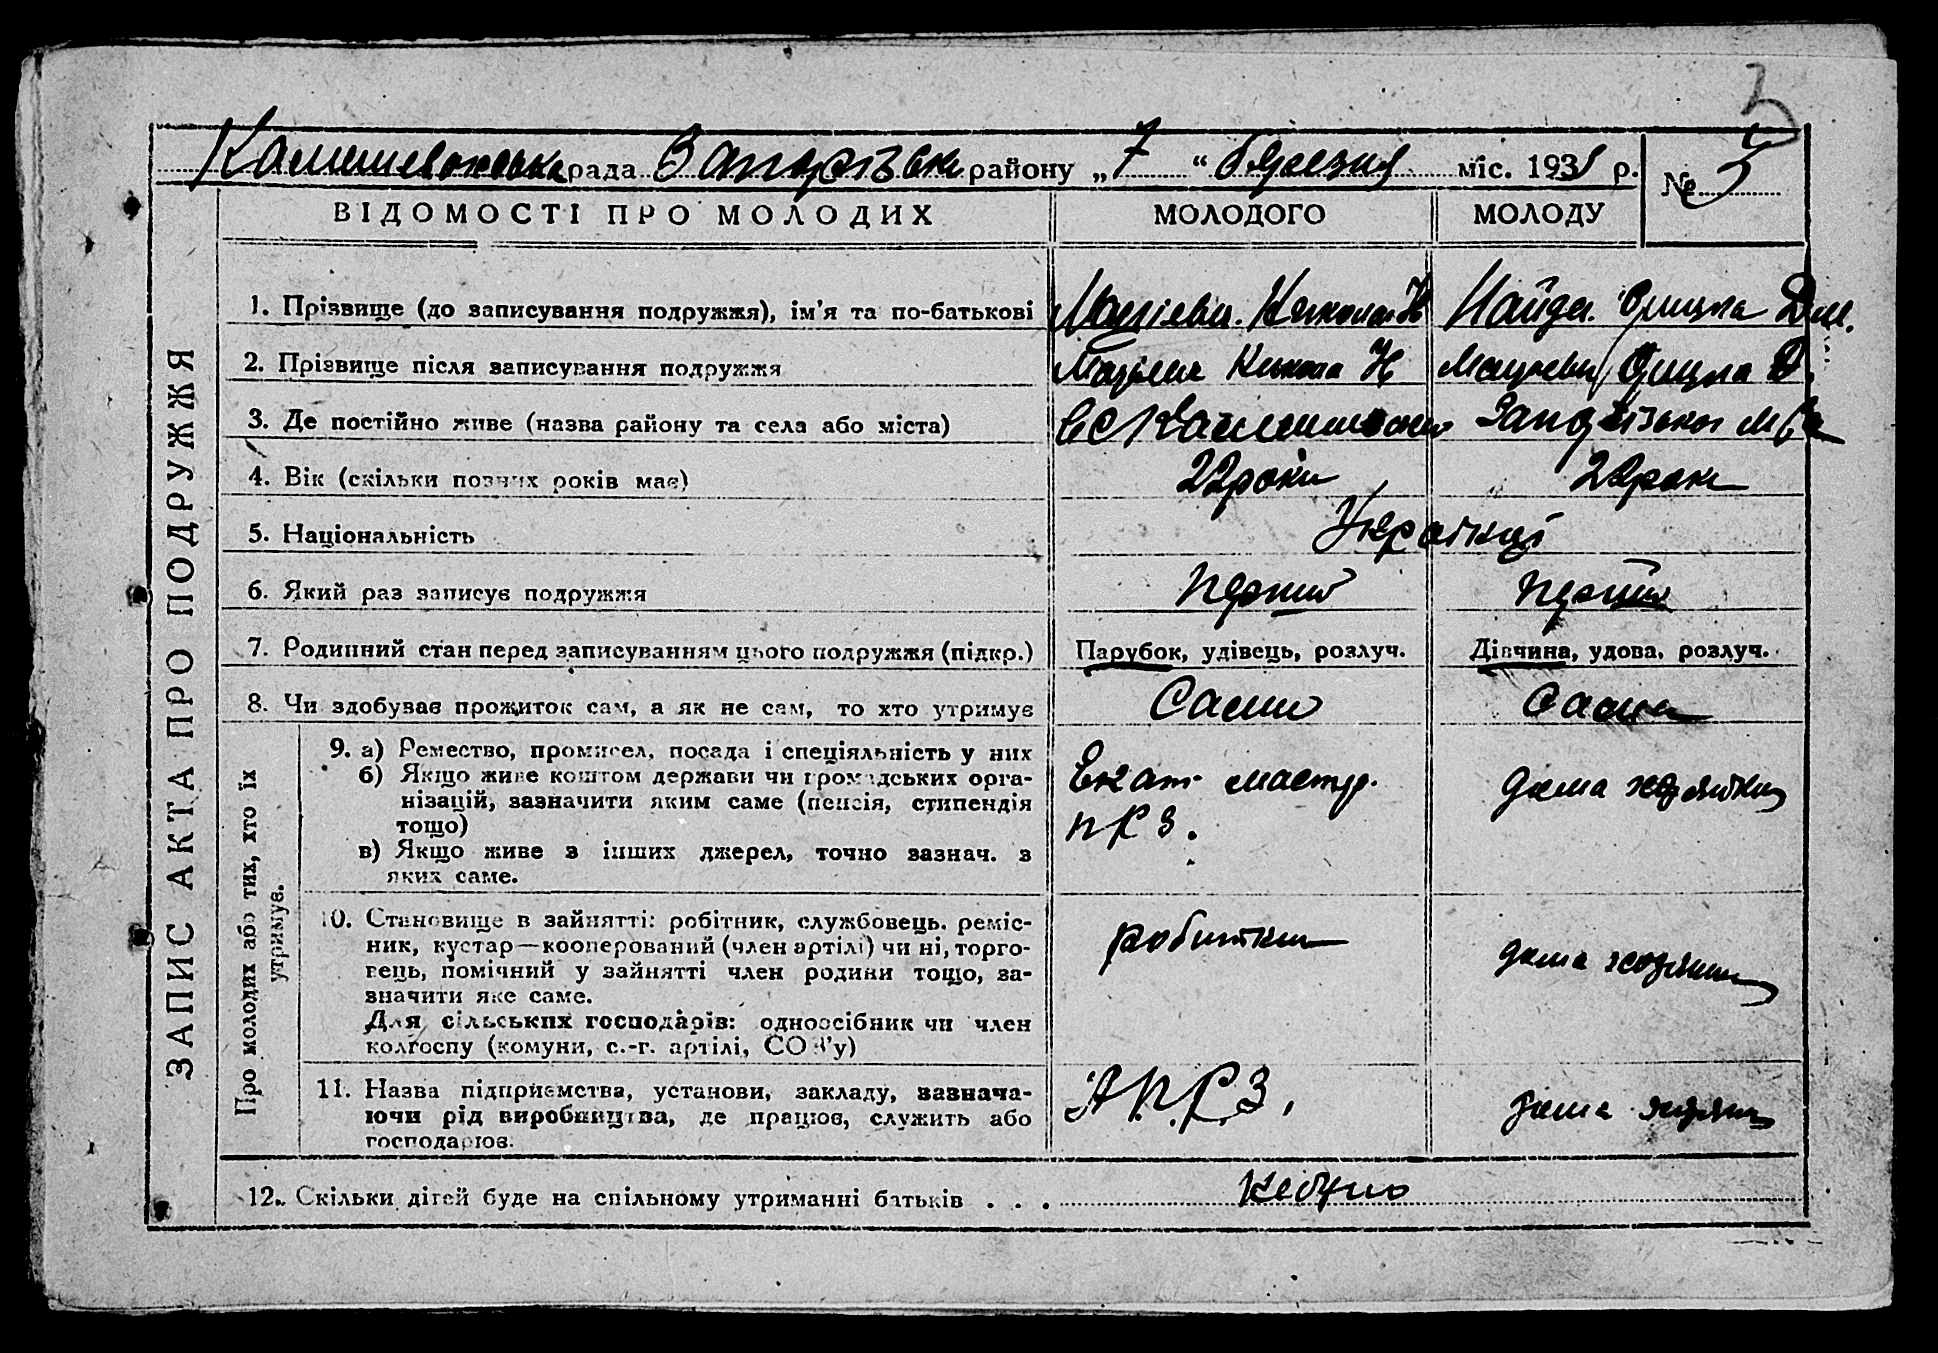 3
рада района „7“ березня міс. 1931 р.
№ 3
ЗАПИС АКТА ПРО ПОДРУЖЖЯ
ВІДОМОСТІ ПРО МОЛОДИХ МОЛОДОГО МОЛОДУ
1. Прізвище (до записування подружжя), ім'я та по-батькові Микола Н Найда Оришка Дм.
2. Прізвище після записування подружжя Микола Н Оришка Д.
3. Де постійно живе (назва району та села або міста)
4. Вік (скільки повних років має) 22 роки 22 роки
5. Національність Українці
6. Який раз записує подружжя перший перший
7. Родинний стан перед записуванням цього подружжя (підкр.) Парубок, удівець, розлуч. Дівчина, удова, розлуч.
8. Чи здобував прожиток сам, а як не сам, то хто утримує Сами Сама
Про молодих або тих, хто їх утримує.
9. а) Ремество, промисел, посада і спеціяльність у них
б) Якщо живе коштом держави чи громадських орга-
нізацій, зазначити яким саме (пенсія, стипендія
тощо)
в) Якщо живе з інших джерел, точно зазнач. з
яких саме.
мастер.
ПРЗ.
дома
10. Становище в зайнятті: робітник, службовець, реміс-
ник, кустар—кооперований (член артілі) чи ні, торго-
вець, помічний у зайнятті член родини тощо, за-
значити яке саме.
Для сільських господарів: одноосібник чи член
колгоспу (комуни, с.-г. артілі, СОЗ'у)
робитник
дома
11. Назва підприємства, установи, закладу, зазнача-
ючи рід виробництва, де працює, служить або
господарює.
А.П.Р.З.
дома
12. Скільки дітей буде на спільному утриманні батьків . . . Небуло